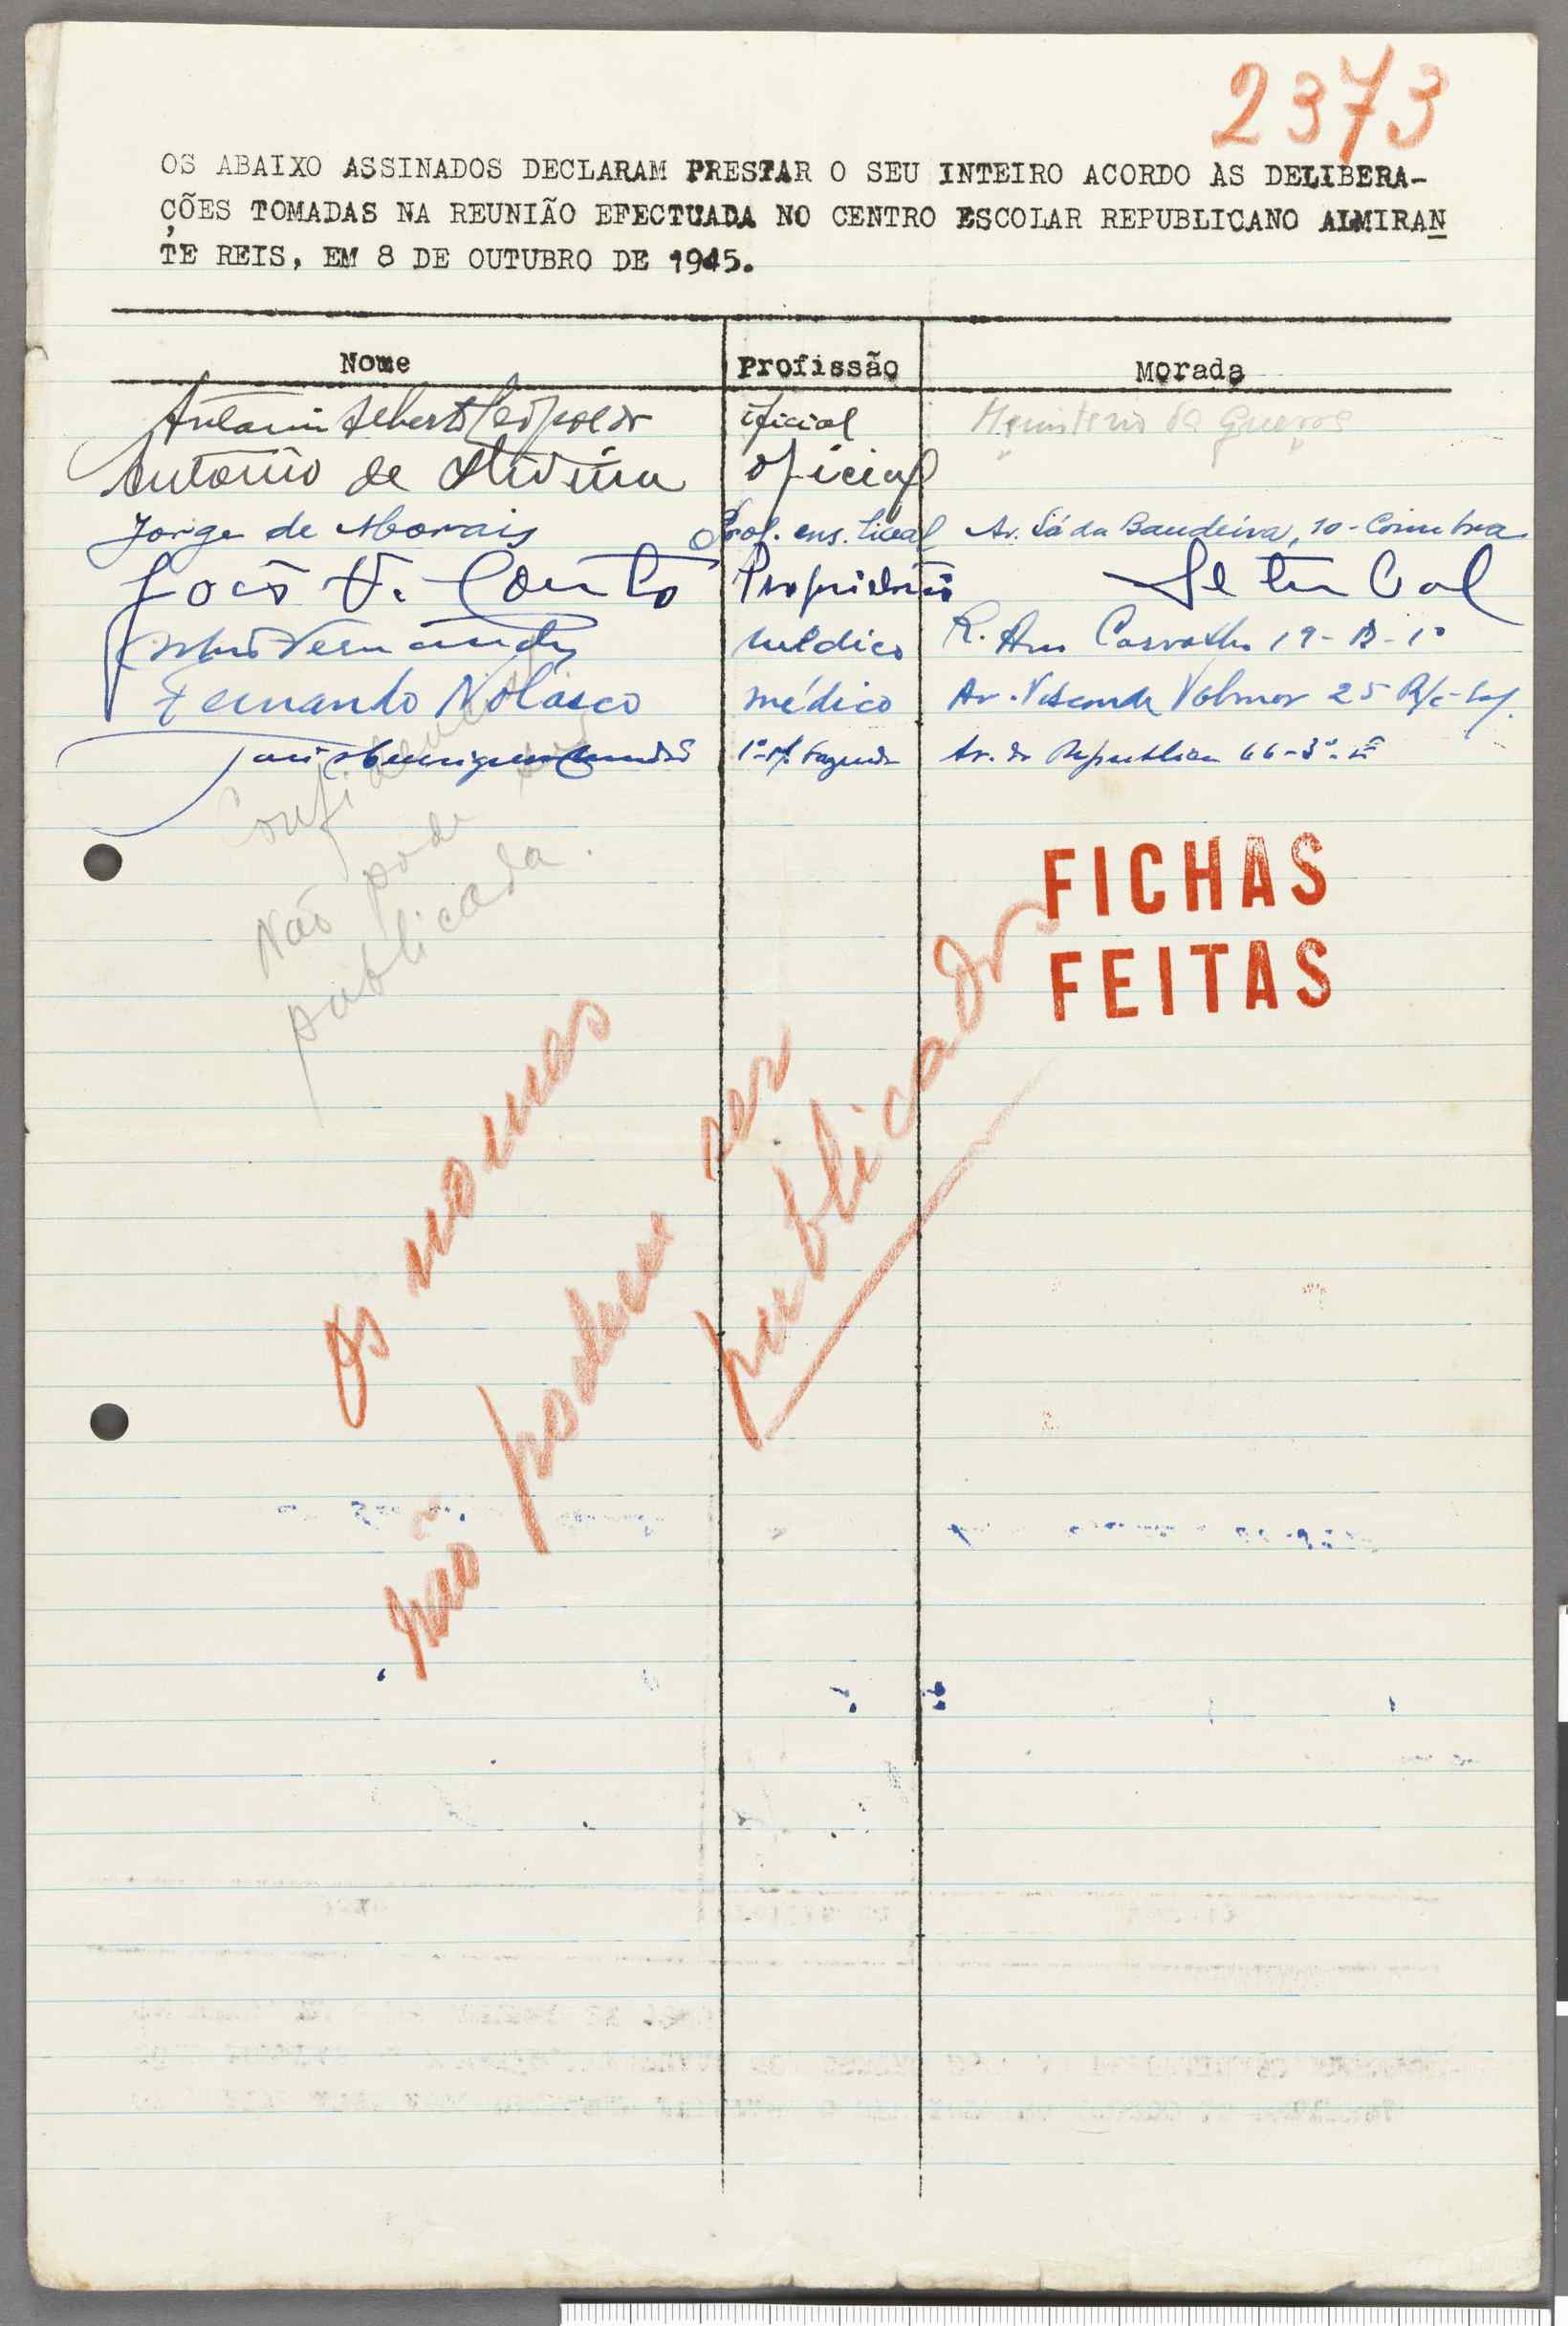 2373
OS ABAIXO ASSINADOS DECLARAM PRESTAR O SEU INTEIRO ACORDO ÀS DELIBERA-
ÇÕES TOMADAS NA REUNIÃO EFECTUADA NO CENTRO ESCOLAR REPUBLICANO ALMIRAN
TE REIS, EM 8 DE OUTUBRO DE 1945.
Nome Profissão Morada
Antonio Alberto Leopoldo oficial Ministerio da Guerra
Antonio de Oliveira oficial
Jorge de Morais Prof. ens. liceal Av. Sá da Bandeira, 10 - Coimbra
João V. Couto Proprietario Setubal
Fernandes médico R. Carvalho 19 - 1º
Fernando Nolasco médico Av. Visconde Valmor 25 R/c-
José Henriques Av. da Republica 66-3º
Confidencial
Não pode ser
publicada.
FICHAS
FEITAS
Os nomes
não podem ser
publicados